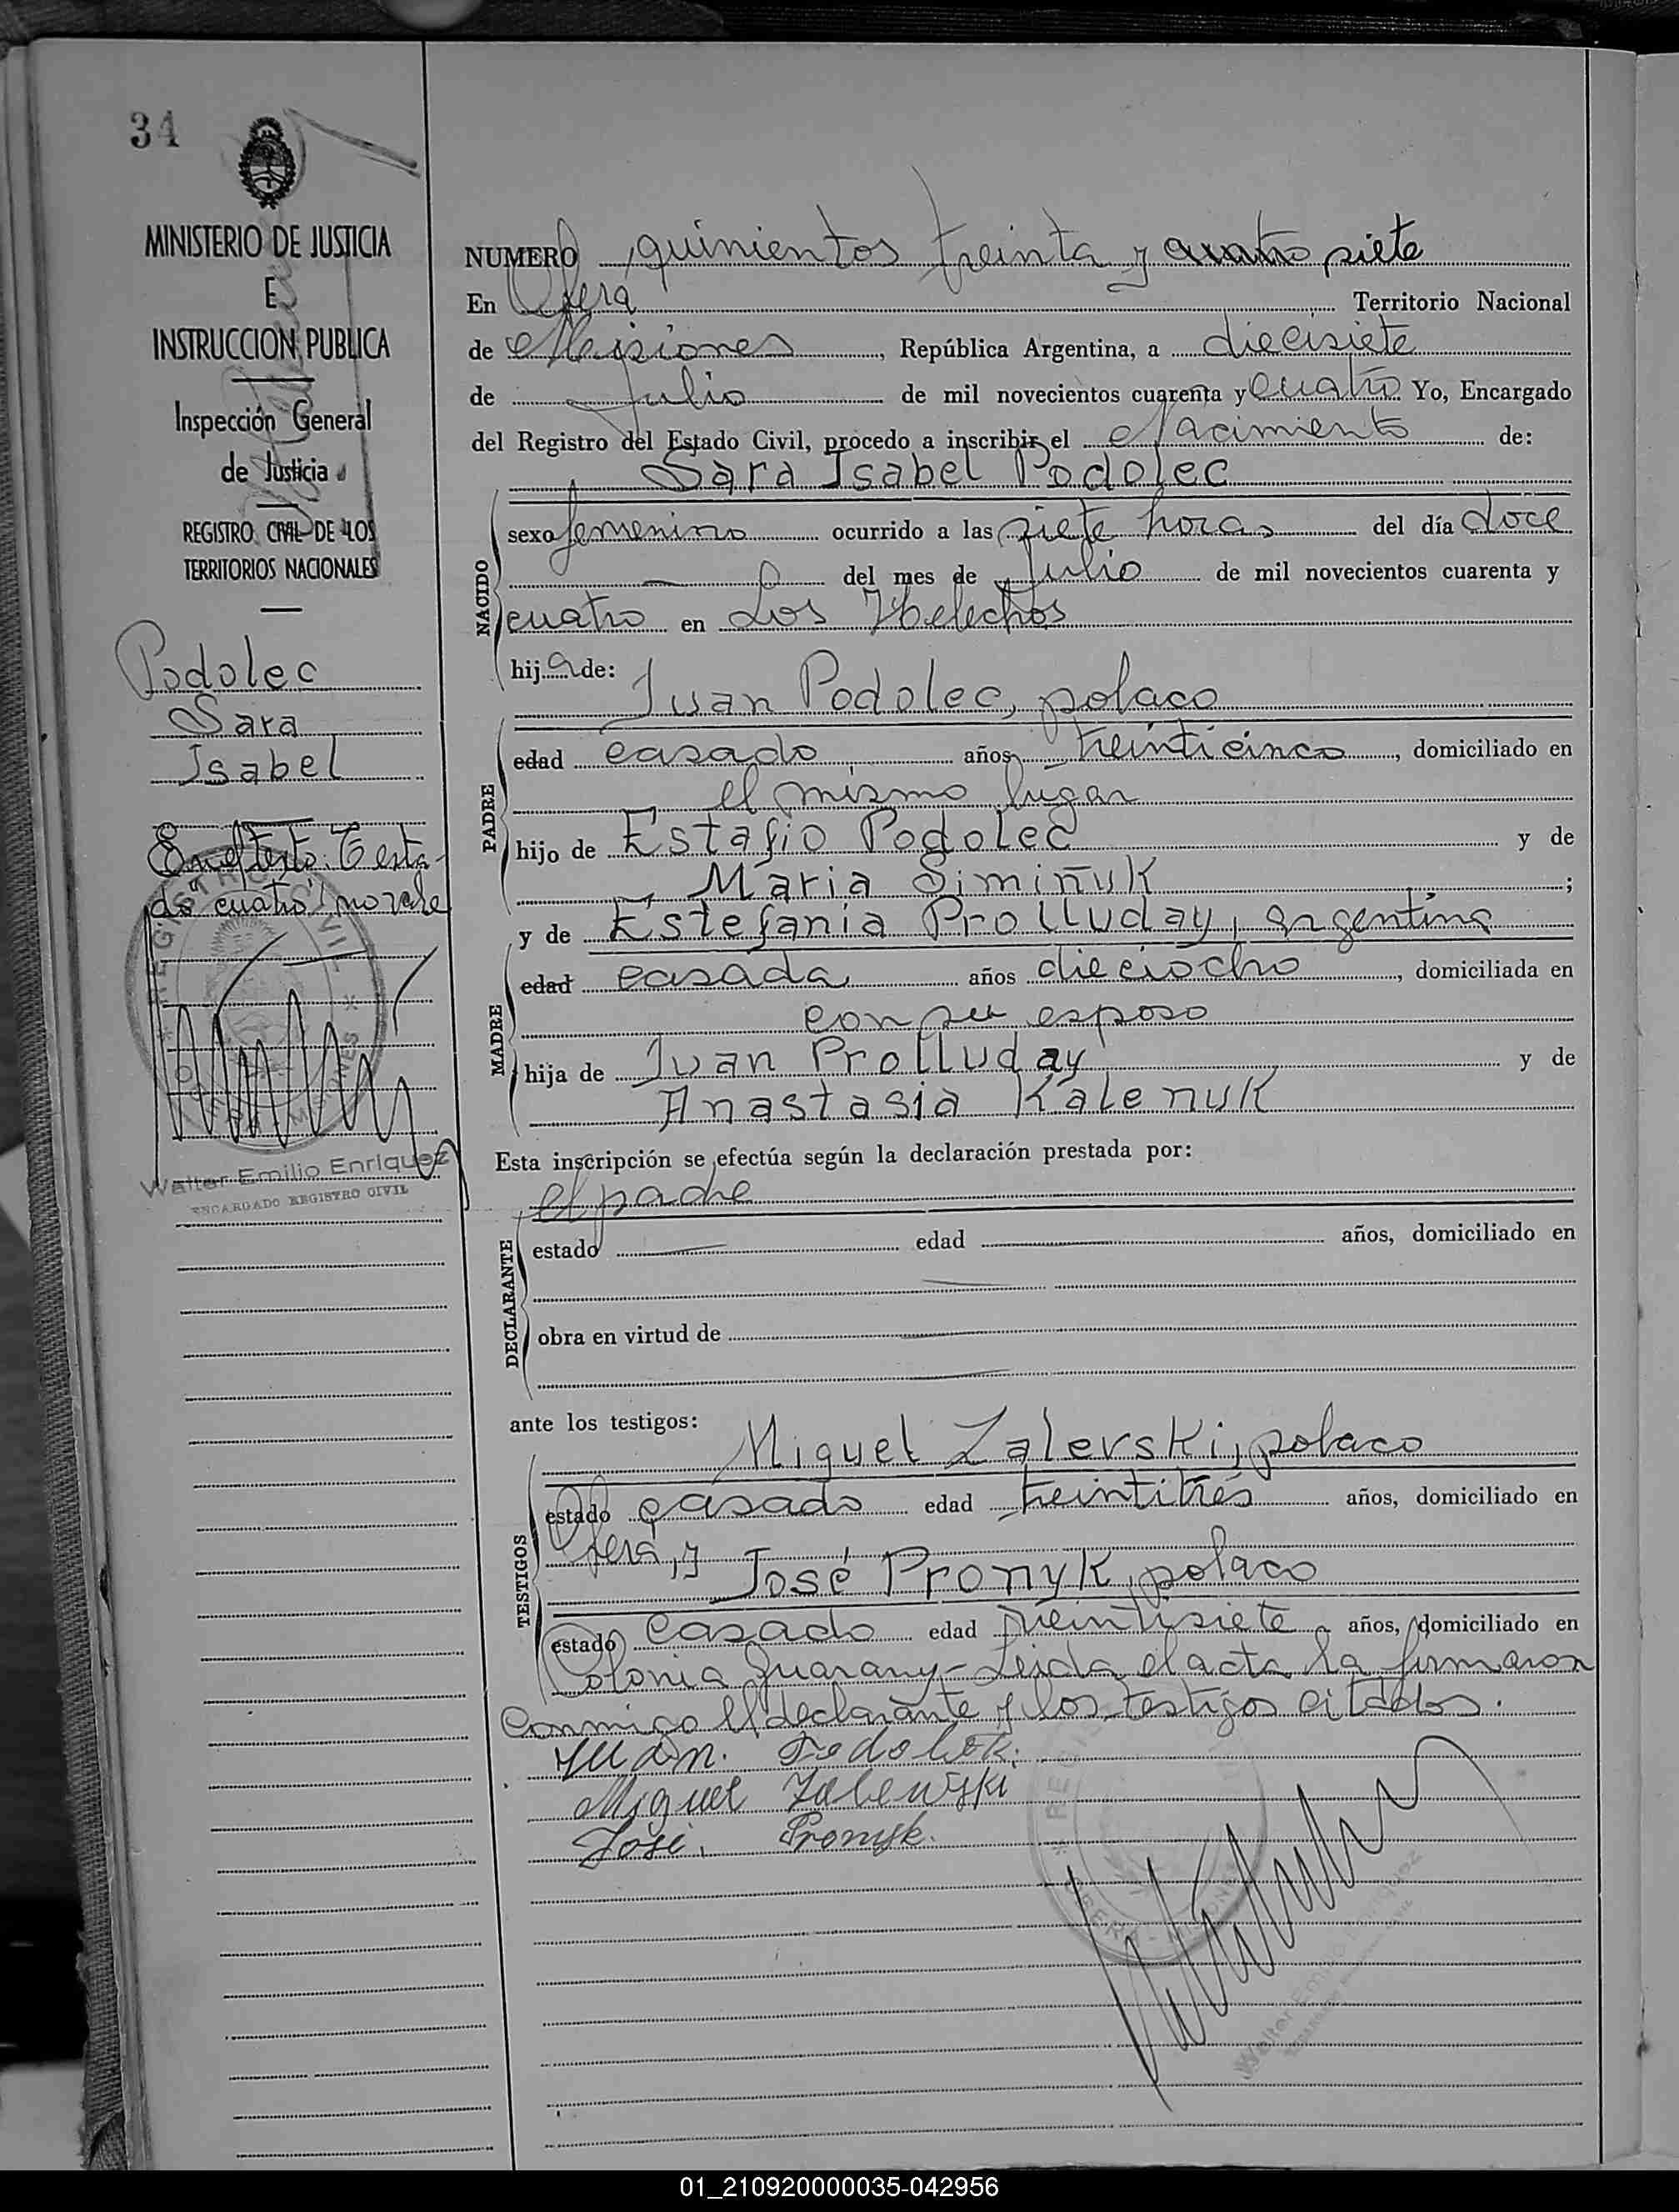 34
MINISTERIO DE JUSTICIA
E
INSTRUCCION PUBLICA
Inspección General
de Justicia
REGISTRO CIVIL DE LOS
TERRITORIOS NACIONALES
Podolec
Sara
Isabel
En el texto: Testa-
do "cuatro" no vale
REGISTRO CIVIL
MISIONES
Walter Emilio Enriquez
ENCARGADO REGISTRO CIVIL
NUMERO quinientos treinta y cuatro siete
En Oberá Territorio Nacional
de Misiones, República Argentina, a diecisiete
de Julio de mil novecientos cuarenta y cuatro Yo, Encargado
del Registro del Estado Civil, procedo a inscribir el Nacimiento de:
Sara Isabel Podolec
NACIDO
sexo femenino ocurrido a las siete horas del día doce
del mes de Julio de mil novecientos cuarenta y
cuatro en Los Helechos
hija de:
Juan Podolec, polaco
PADRE
edad casado años treinticinco, domiciliado en
el mismo lugar
hijo de Estafio Podolec y de
Maria Simiñuk;
y de Estefania Prolluday, argentina
MADRE
edad casada años dieciocho, domiciliada en
con su esposo
hija de Juan Prolluday y de
Anastasia Kalenuk
Esta inscripción se efectúa según la declaración prestada por:
el padre
DECLARANTE
estado edad años, domiciliado en
obra en virtud de
ante los testigos:
Miguel Zalevski, polaco
TESTIGOS
estado casado edad treintitrés años, domiciliado en
Oberá, y
José Pronyk, polaco
estado casado edad treintisiete años, domiciliado en
Colonia Guarany - Leida el acta la firmaron
conmigo el declarante y los testigos citados.
Juan. Podolek.
Miguel Zalewski
José. Pronyk.
Walter Emilio Enriquez
01_210920000035-042956